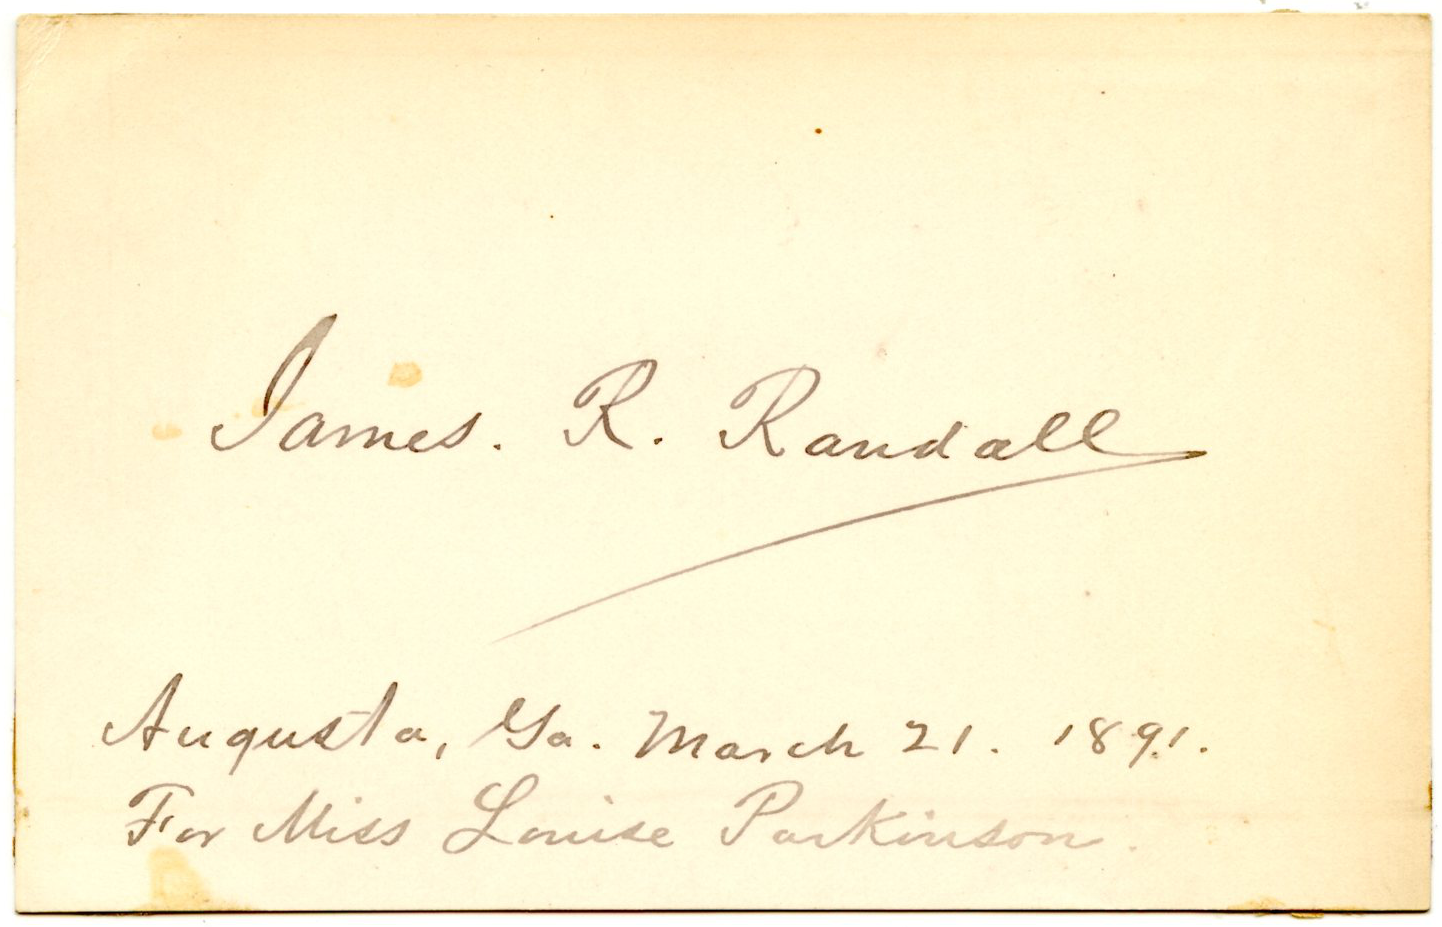 James. R. Randall
Augusta, Ga. March 21. 1891.
For Miss Louise Parkinson.